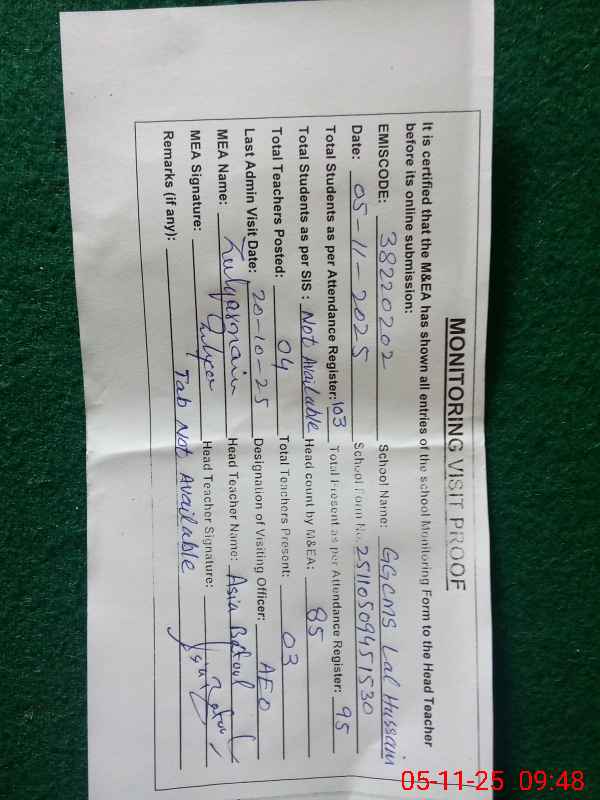 MONITORING VISIT PROOF
It is certified that the M&EA has shown all entries of the school Monitoring Form to the Head Teacher
before its online submission:
EMISCODE: 38220202 School Name: GGCMS Lal Hussain
Date: 05-11-2025 School Form No. 25110509451530
Total Students as per Attendance Register: 103 Total Present as per Attendance Register: 95
Total Students as per SIS : Not Available Head count by M&EA: 85
Total Teachers Posted: 04 Total Teachers Present: 03
Last Admin Visit Date: 20-10-25 Designation of Visiting Officer: AEO
MEA Name: Zulqarnain Head Teacher Name: Asia Batool
MEA Signature: Head Teacher Signature:
Remarks (if any): Tab Not Available
05-11-25 09:48